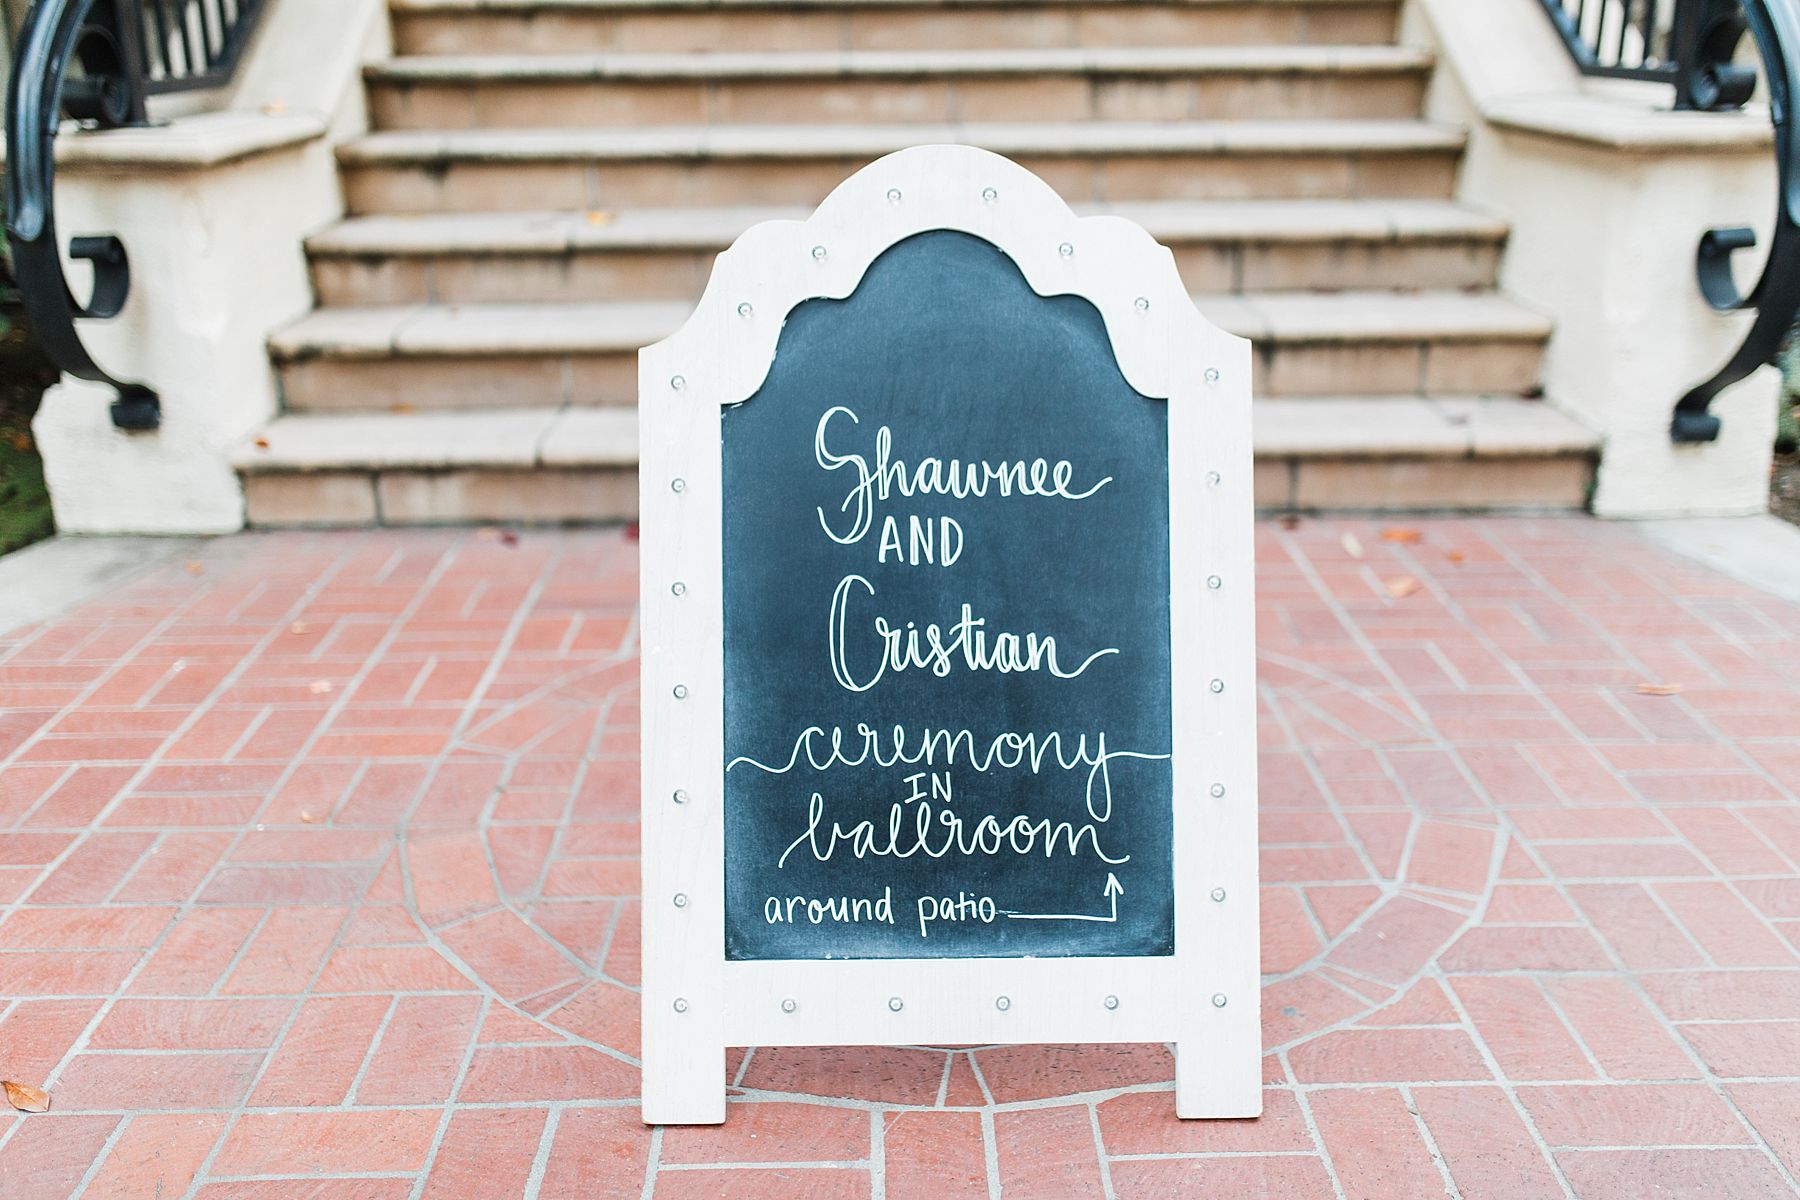 Shawnee
AND
Cristian
ceremony
IN
ballroom
around patio